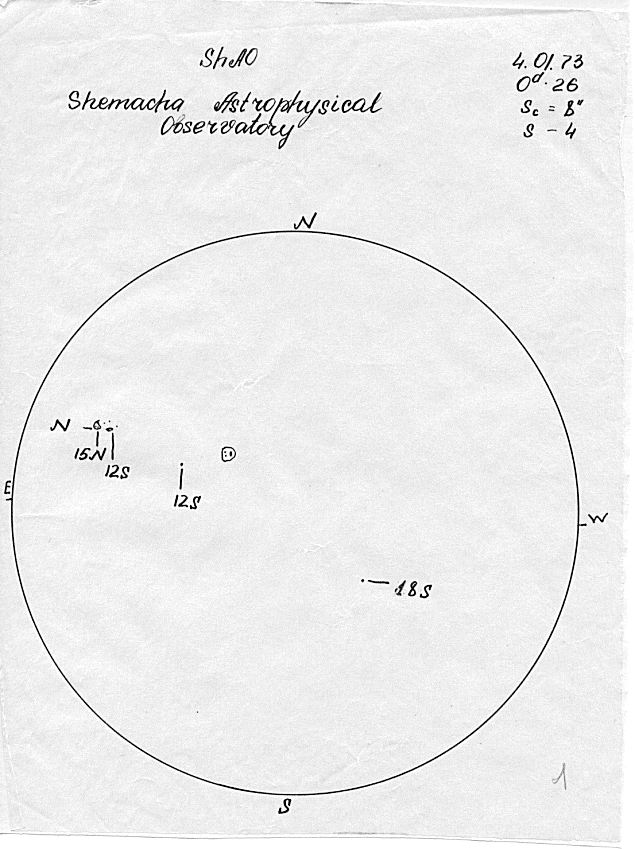 ShAO
4.01.73
Shemacha Astrophysical
Observatory
0d.26
Sc = 8"
S - 4
N
N
15N
12S
12S
E
W
18S
S
1